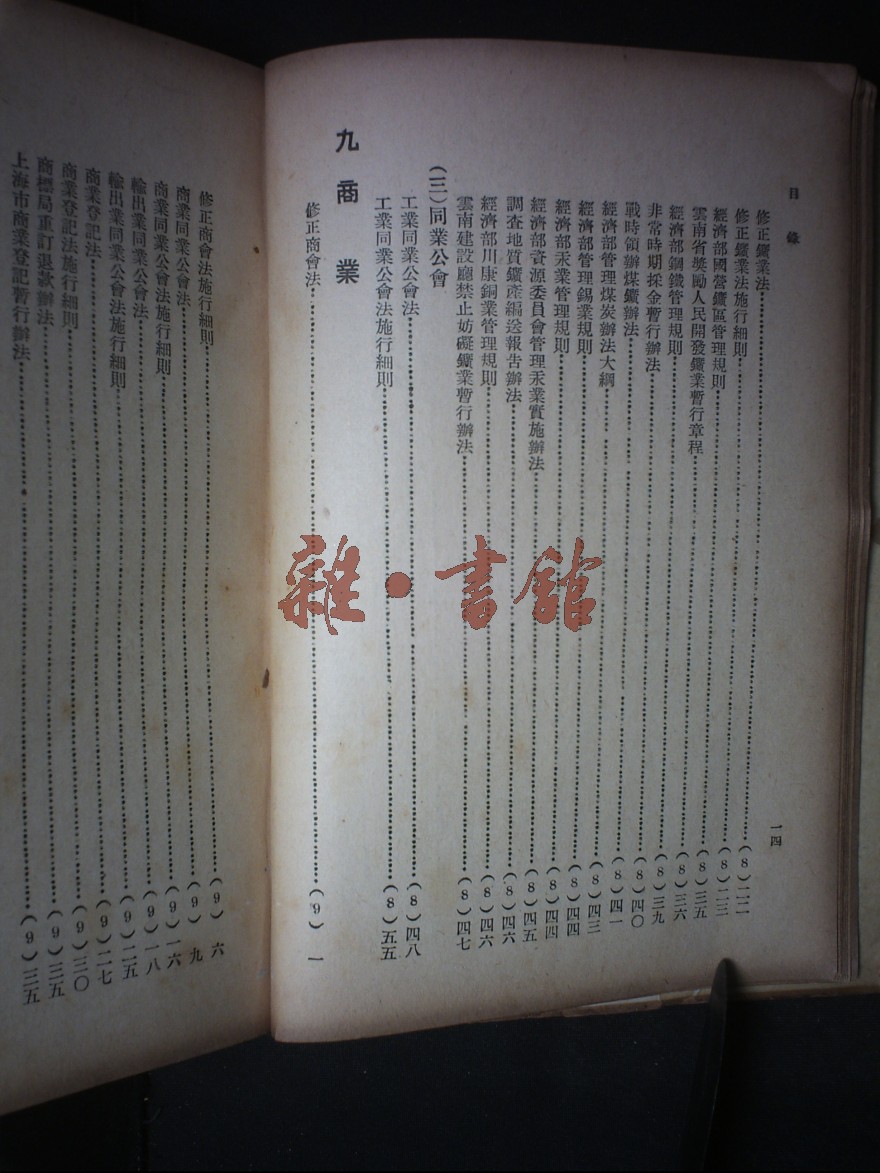 目錄
一四
修正鑛業法(8)一二
修正鑛業法施行細則(8)二二
經濟部國營鑛區管理規則(8)二三
雲南省獎勵人民開發鑛業暫行章程(8)三五
經濟部鋼鐵管理規則(8)三六
非常時期採金暫行辦法(8)三九
戰時領辦煤鑛辦法(8)四〇
經濟部管理煤炭辦法大綱(8)四一
經濟部管理錫業規則(8)四三
經濟部汞業管理規則(8)四四
經濟部資源委員會管理汞業實施辦法(8)四五
調查地質鑛產編送報告辦法(8)四六
經濟部川康銅業管理規則(8)四六
雲南建設廳禁止妨礙鑛業暫行辦法(8)四七
(三)同業公會
工業同業公會法(8)四八
工業同業公會法施行細則(8)五五
九 商業
修正商會法(9)一
修正商會法施行細則(9)六
商業同業公會法(9)九
商業同業公會法施行細則(9)一六
輸出業同業公會法(9)一八
輸出業同業公會法施行細則(9)二五
商業登記法(9)二七
商業登記法施行細則(9)三〇
商標局重訂退款辦法(9)三五
上海市商業登記暫行辦法(9)三五
雜·書館